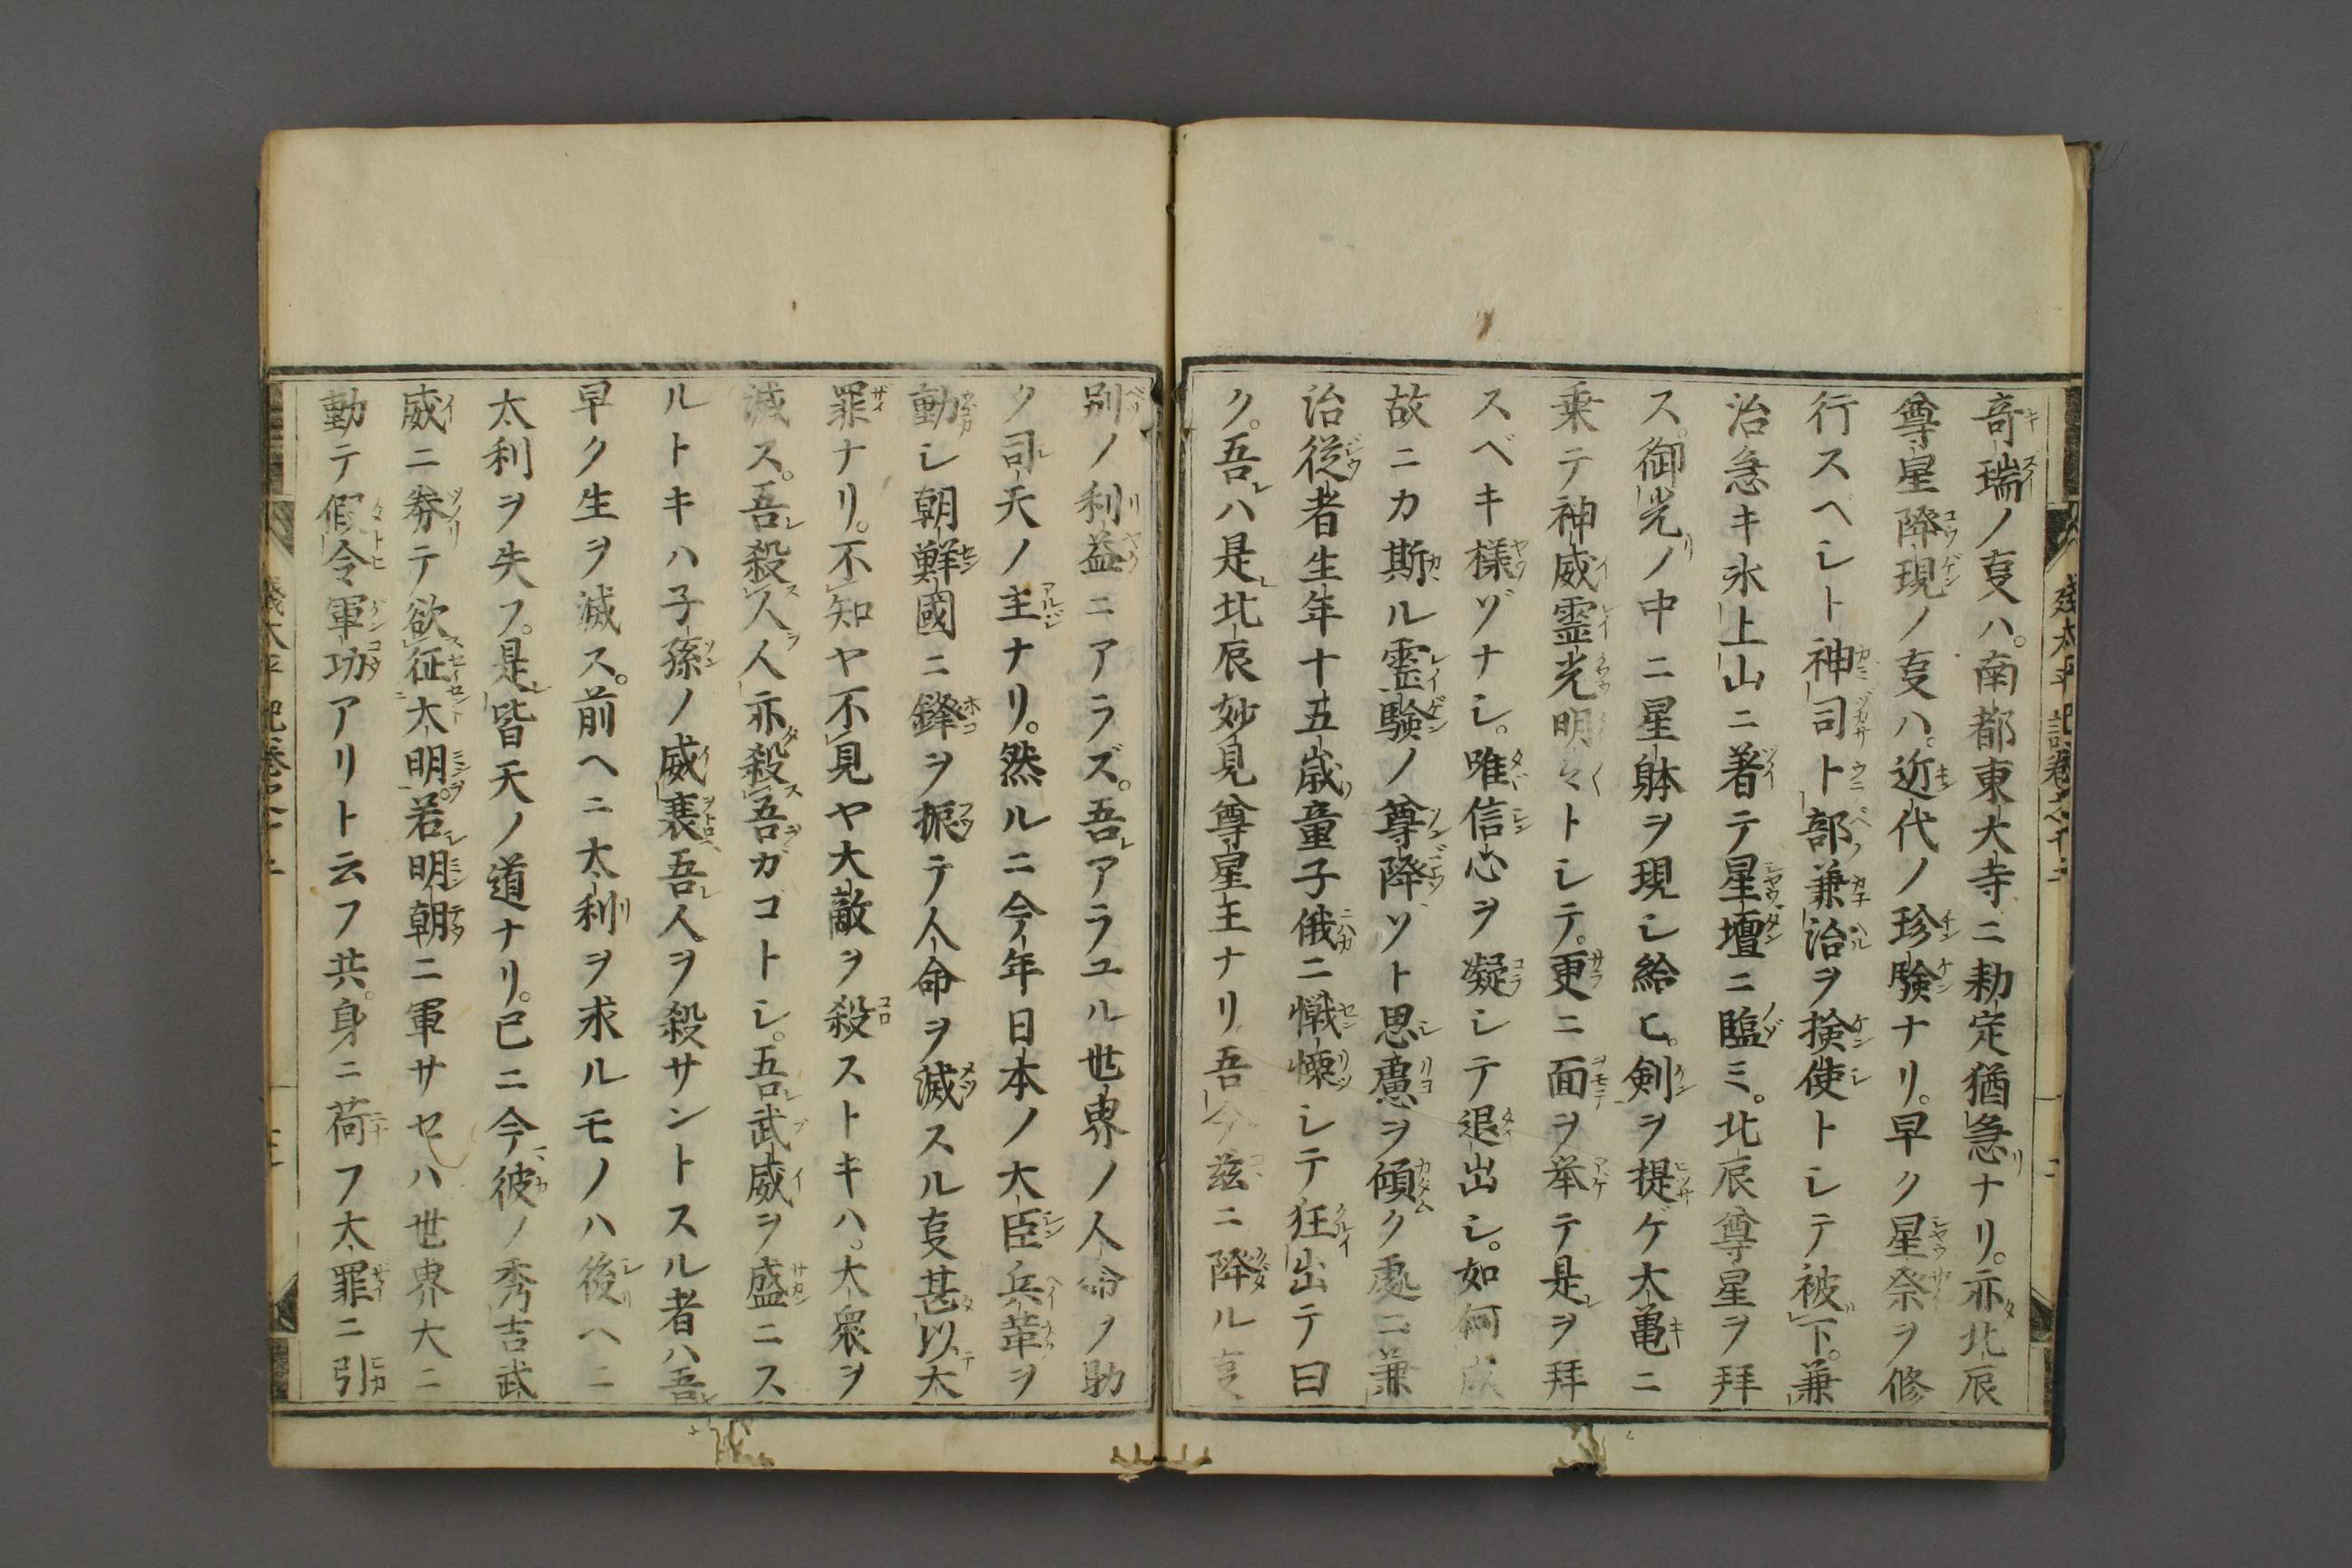 奇瑞ノ叓ハ。南都東大寺ニ勅定猶急ナリ。亦北辰
尊星降現ノ叓ハ。近代ノ珍驗ナリ。早ク星祭ヲ修
行スベシト神司ト部兼治ヲ検使トシテ被下。兼
治急キ氷上山ニ著テ星壇ニ臨ミ。北辰尊星ヲ拜
ス。御光ノ中ニ星躰ヲ現シ給ヒ。剣ヲ提ゲ大亀ニ
乗テ神威霊光明々トシテ。更ニ面ヲ挙テ是ヲ拜
スベキ様ゾナシ。唯信心ヲ凝シテ退出シ。如何成
故ニカ斯ル霊驗ノ尊降ソト思慮ヲ傾ク處ニ兼
治從者生年十五歳童子俄ニ慨慄シテ狂出テ曰
ク。吾ハ是北辰妙見尊星王ナリ吾今茲ニ降ル叓
別ノ利益ニアラズ。吾アラユル世界ノ人命ノ助
ク司天ノ主ナリ。然ルニ今年日本ノ大臣兵革ヲ
動シ朝鮮國ニ鋒ヲ振テ人命ヲ滅スル叓甚以大
罪ナリ。不知ヤ不見ヤ大敵ヲ殺ストキハ。大衆ヲ
滅ス。吾殺人人亦殺吾ガコトシ。吾武威ヲ盛ニス
ルトキハ子孫ノ威衰吾人ヲ殺サントスル者ハ吾
早ク生ヲ滅ス。前ヘニ太利ヲ求ルモノハ後ヘニ
太利ヲ失フ。是皆天ノ道ナリ。已ニ今彼ノ秀吉武
威ニ劵テ欲征太明。若明朝ニ軍サセハ世界大ニ
動テ假令軍功アリト云フ共。身ニ荷フ大罪ニ引
残太平記巻之十二